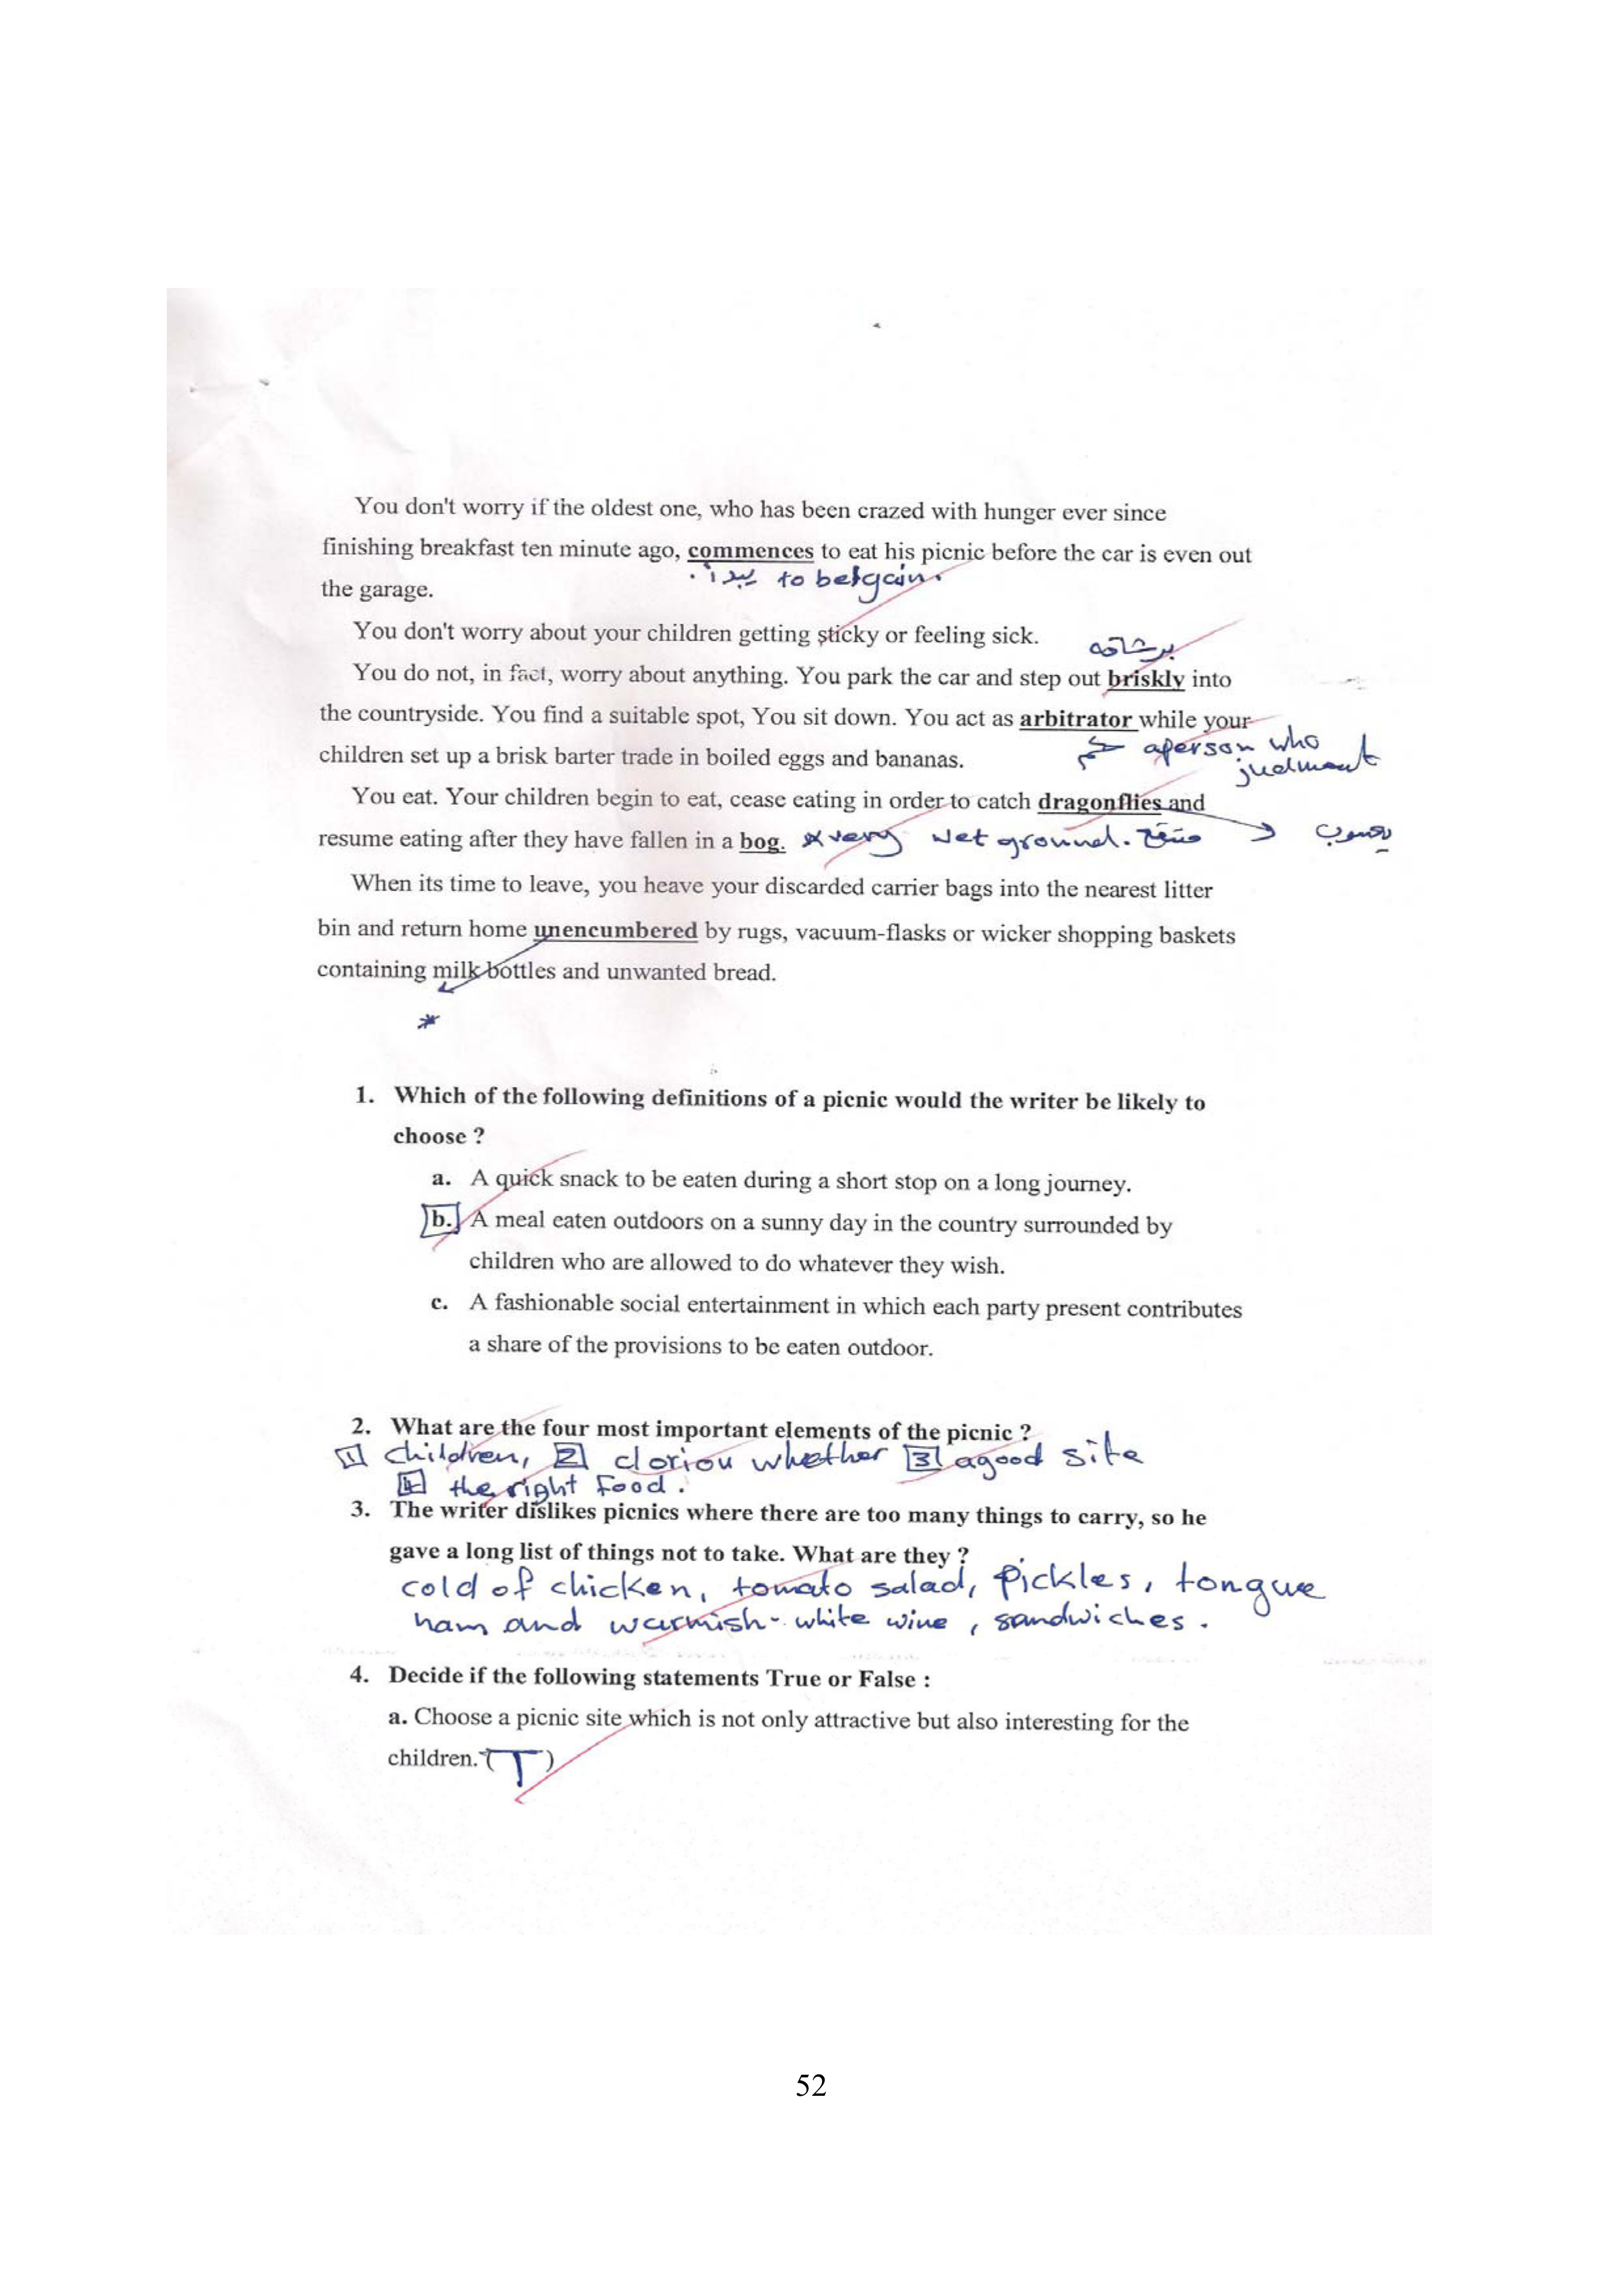 You don't worry if the oldest one, who has been crazed with hunger ever since
finishing breakfast ten minute ago, commences to eat his picnic before the car is even out
. يبدأ to belgain.
the garage.
You don't worry about your children getting sticky or feeling sick.
You do not, in fact, worry about anything. You park the car and step out briskly into
the countryside. You find a suitable spot, You sit down. You act as arbitrator while your
حكم aperson who
judment
children set up a brisk barter trade in boiled eggs and bananas.
You eat. Your children begin to eat, cease eating in order to catch dragonflies and
resume eating after they have fallen in a bog. * very wet ground. يعسوب
When its time to leave, you heave your discarded carrier bags into the nearest litter
bin and return home unencumbered by rugs, vacuum-flasks or wicker shopping baskets
containing milk bottles and unwanted bread.
*
1. Which of the following definitions of a picnic would the writer be likely to
choose ?
a. A quick snack to be eaten during a short stop on a long journey.
b. A meal eaten outdoors on a sunny day in the country surrounded by
children who are allowed to do whatever they wish.
c. A fashionable social entertainment in which each party present contributes
a share of the provisions to be eaten outdoor.
2. What are the four most important elements of the picnic ?
1 children, 2 cloriou whether 3 agood site
4 the right Food.
3. The writer dislikes picnics where there are too many things to carry, so he
gave a long list of things not to take. What are they ?
cold of chicken, tomato salad, Pickles, tongue
ham and warmish-white wine, sandwiches.
4. Decide if the following statements True or False :
a. Choose a picnic site which is not only attractive but also interesting for the
children. (T)
52